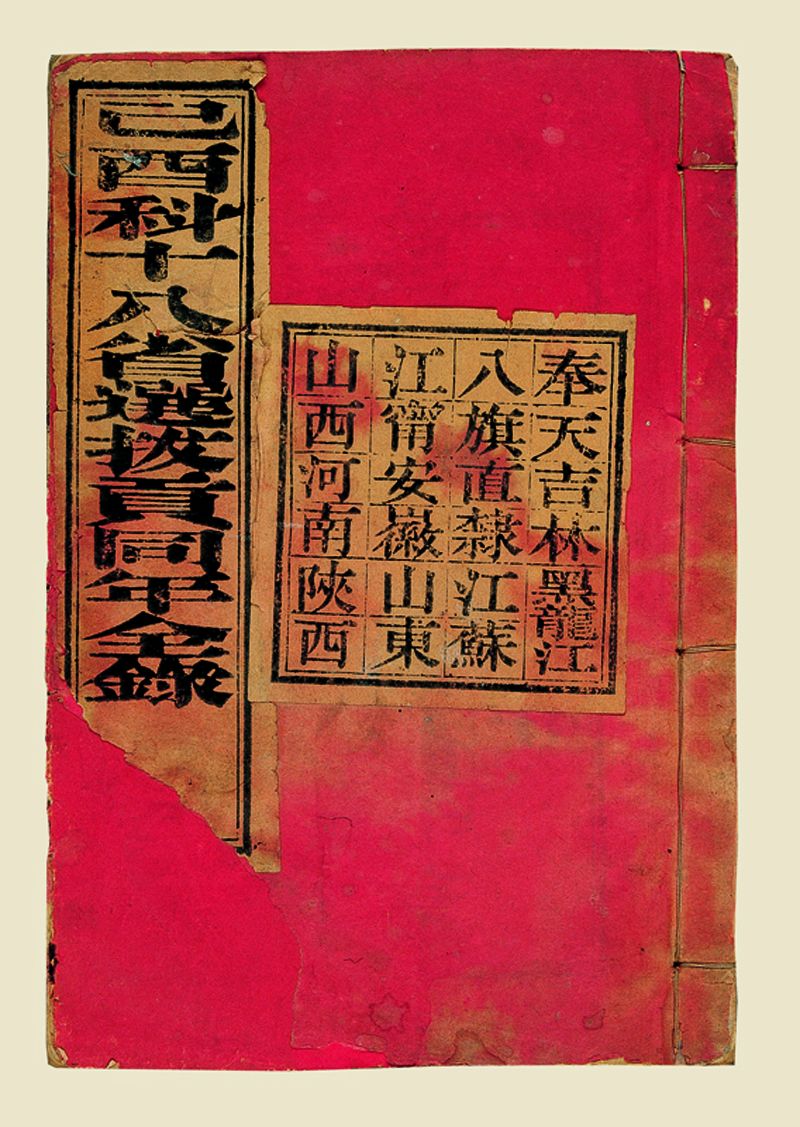 己酉科十八省選拔貢同年全錄
奉天吉林黑龍江
八旗直隸江蘇
江甯安徽山東
山西河南陝西